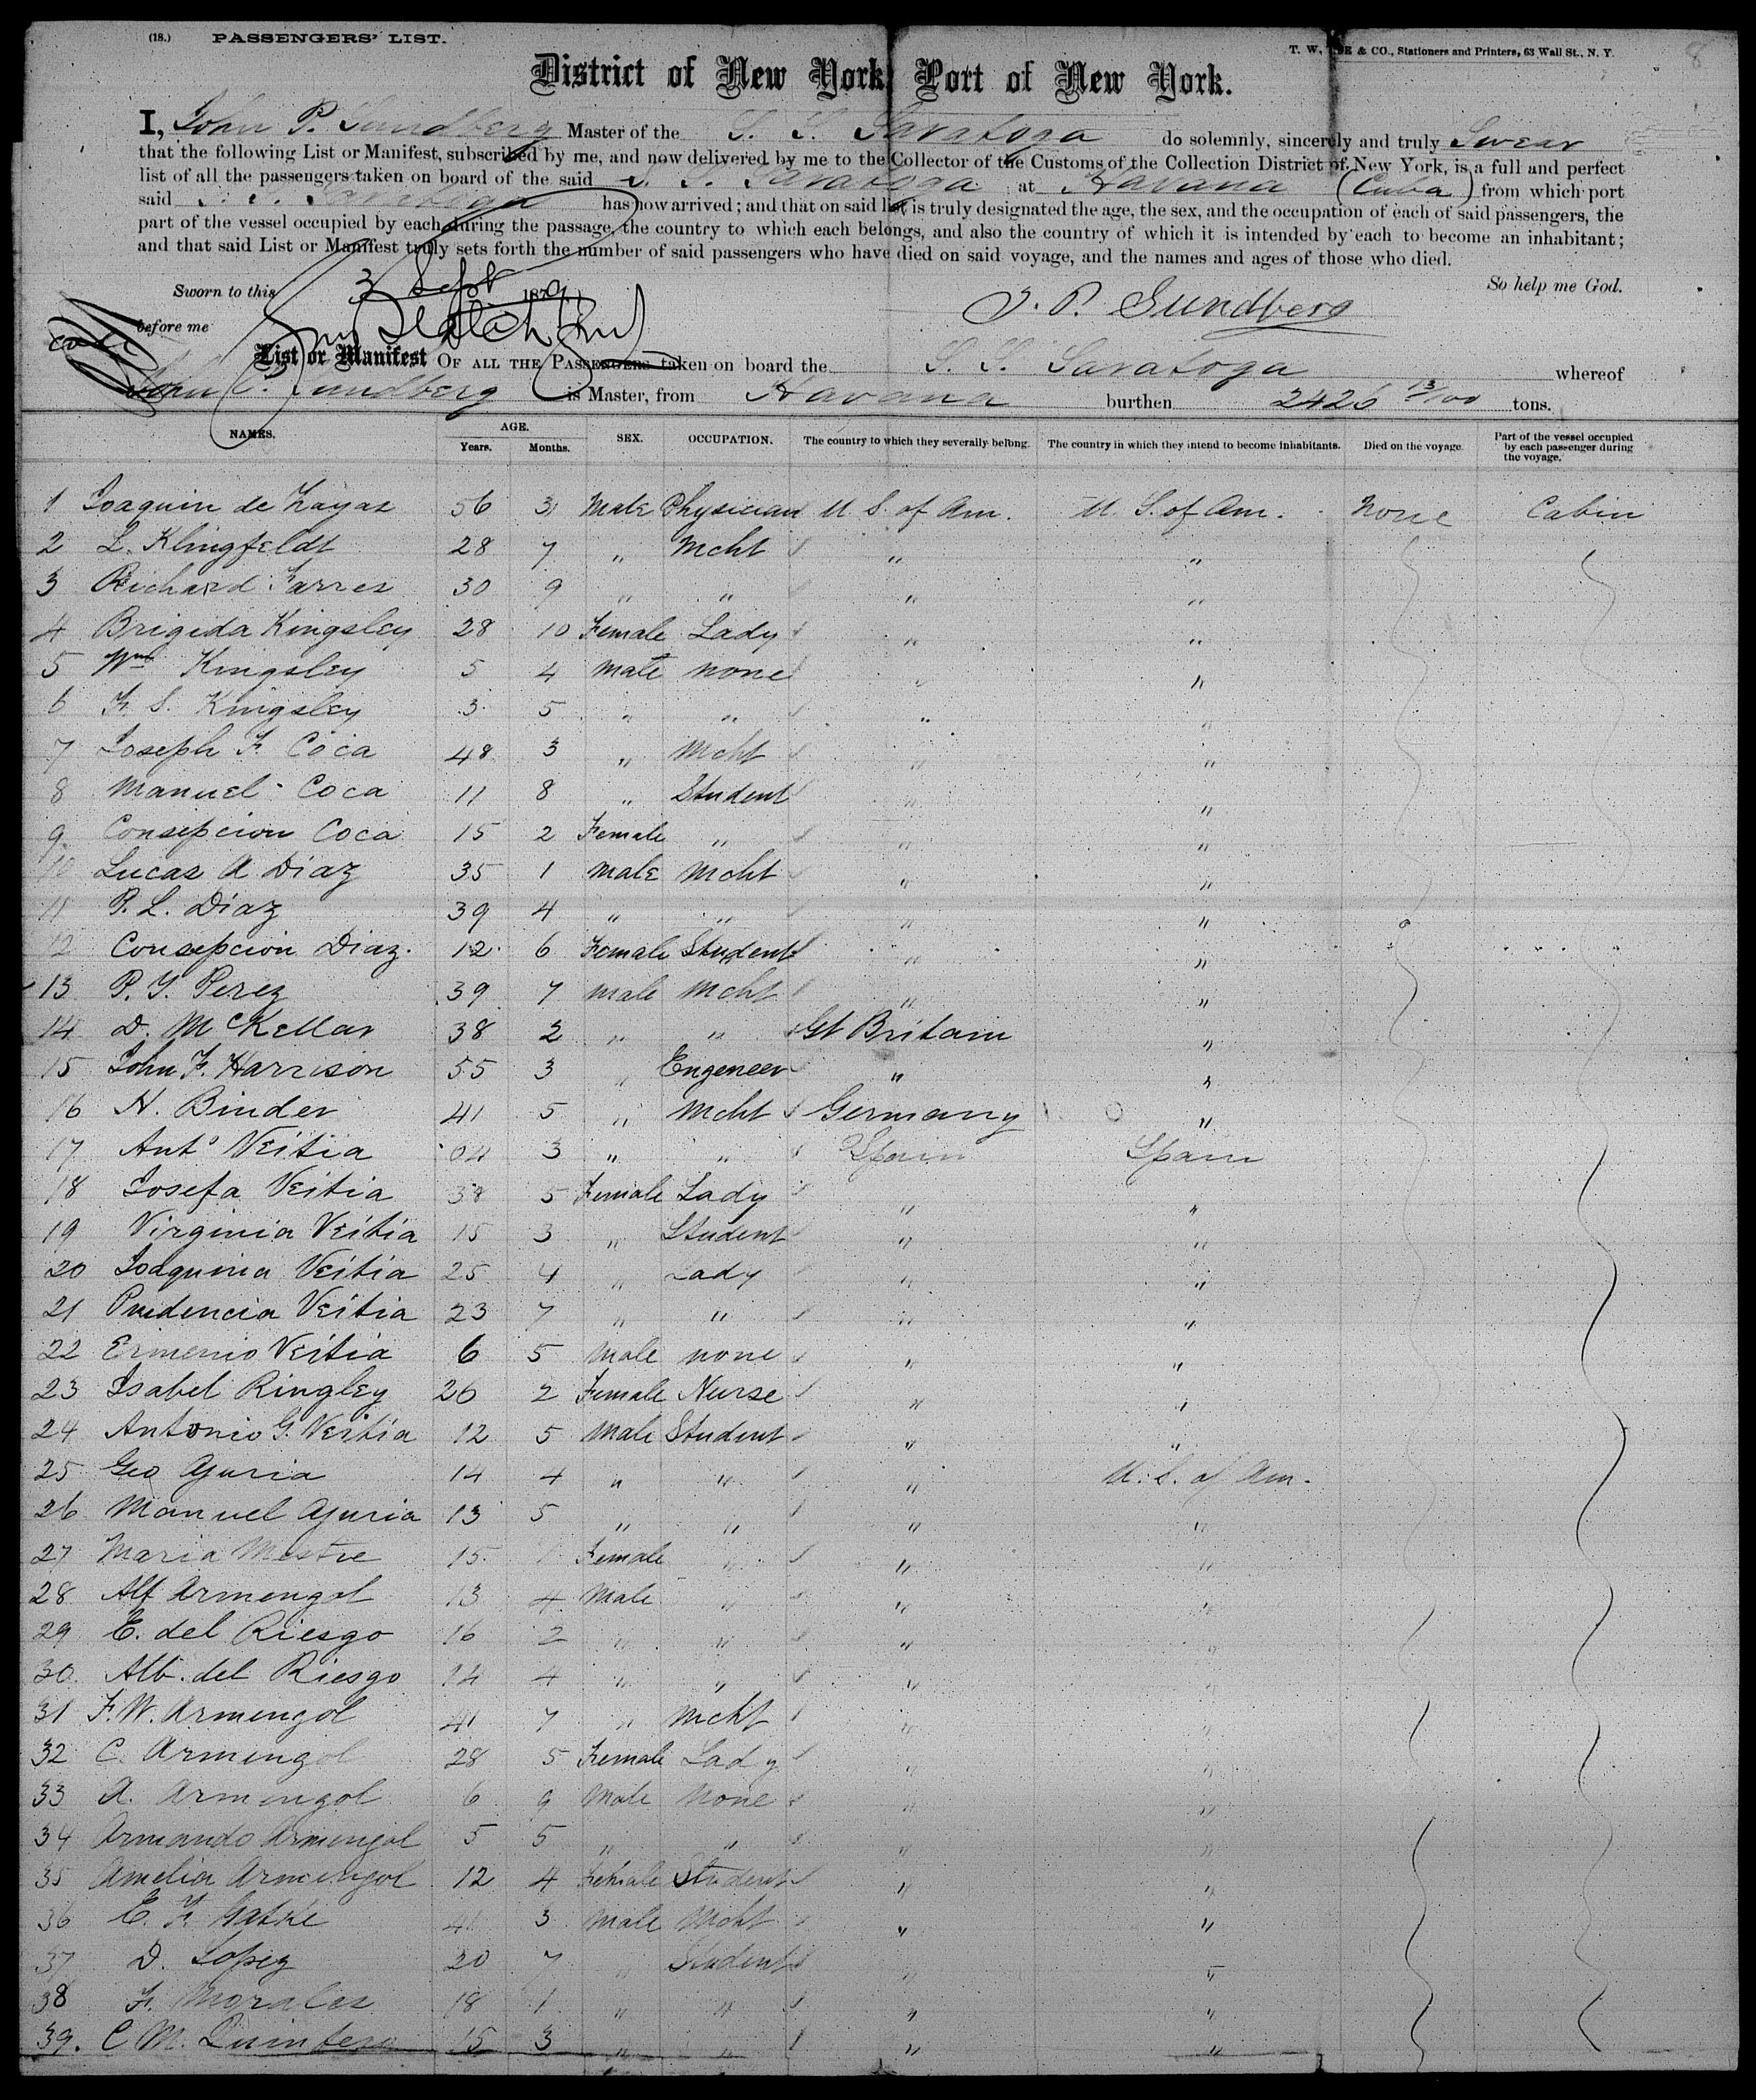 (18.) PASSENGERS' LIST.
T. W. & CO., Stationers and Printers, 63 Wall St., N. Y.
8
District of New York Port of New York.
I, John P. Sundberg Master of the S. S. Saratoga do solemnly, sincerely and truly Swear
that the following List or Manifest, subscribed by me, and now delivered by me to the Collector of the Customs of the Collection District of New York, is a full and perfect
list of all the passengers taken on board of the said S. S. Saratoga at Havana (Cuba) from which port
said S. S. Saratoga has now arrived; and that on said list is truly designated the age, the sex, and the occupation of each of said passengers, the
part of the vessel occupied by each during the passage, the country to which each belongs, and also the country of which it is intended by each to become an inhabitant;
and that said List or Manifest truly sets forth the number of said passengers who have died on said voyage, and the names and ages of those who died.
So help me God.
Sworn to this 3 Sept 1879
J. P. Sundberg
before me
List or Manifest OF ALL THE PASSENGERS taken on board the S. S. Saratoga whereof
John P. Sundberg is Master, from Havana burthen 2426 13/100 tons.
NAMES. AGE. Years. Months. SEX. OCCUPATION. The country to which they severally belong. The country in which they intend to become inhabitants. Died on the voyage. Part of the vessel occupied by each passenger during the voyage.
1 Joaquin de Zayas 56 3 Male Physician U. S. of Am. U. S. of Am. None Cabin
2 L. Klingfeldt 28 7 " Mcht " "
3 Richard Farres 30 9 " " " "
4 Brigida Kingsley 28 10 Female Lady " "
5 Wm Kingsley 5 4 male none " "
6 F. S. Kingsley 3 5 " " " "
7 Joseph F. Coca 48 3 " Mcht " "
8 Manuel Coca 11 8 " Student " "
9 Consepcion Coca 15 2 Female " " "
10 Lucas A Diaz 35 1 male Mcht " "
11 P. L. Diaz 39 4 " " " "
12 Consepcion Diaz. 12 6 Female Student " "
13 P. Y. Perez 39 7 male Mcht " "
14 D. McKellar 38 2 " " Gt Britain "
15 John F. Harrison 55 3 " Engeneer " "
16 N. Binder 41 5 " Mcht Germany "
17 Anto Veitia 3 " " Spain Spain
18 Josefa Veitia 38 5 Female Lady " "
19 Virginia Veitia 15 3 " Student " "
20 Joaquina Veitia 25 4 " Lady " "
21 Prudencia Veitia 23 7 " " " "
22 Ermenio Veitia 6 5 Male none " "
23 Isabel Ringley 26 2 Female Nurse " "
24 Antonio G. Veitia 12 5 Male Student " "
25 Geo Aguria 14 4 " " " U. S. of Am.
26 Manuel Aguria 13 5 " " " "
27 Maria Mestre 15 Female " " "
28 Alf Armengol 13 4 Male " " "
29 E. del Riesgo 16 2 " " " "
30 Alb. del Riesgo 14 4 " " " "
31 F. W. Armengol 41 7 " Mcht " "
32 C. Armengol 28 5 Female Lady " "
33 A. Armengol 6 9 Male None " "
34 Armando Armengol 5 5 " " " "
35 Amelia Armengol 12 4 Female Student " "
36 E. F. 41 3 Male Mcht " "
37 D. Lopez 20 7 " Student " "
38 F. Morales 18 1 " " " "
39. C M. Quintero 15 3 " " " "